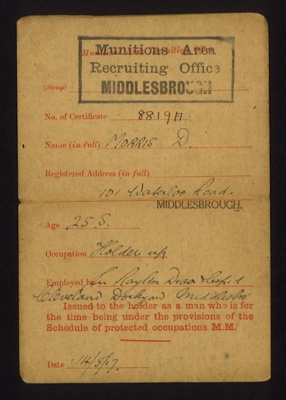 Munitions Area
Recruiting Office
(Stamp) MIDDLESBROUGH
No. of Certificate 8819
Name (in full) Morris D.
Registered Address (in full)
101 Waterloo Road.
MIDDLESBROUGH.
Age 25 S.
Occupation Holder up
Employed by Sir Raylton Dixon & Co Ld
Cleveland Dockyard Middlesbro
Issued to the holder as a man who is for
the time being under the provisions of the
Schedule of protected occupations M.M.
Date 14/5/17.